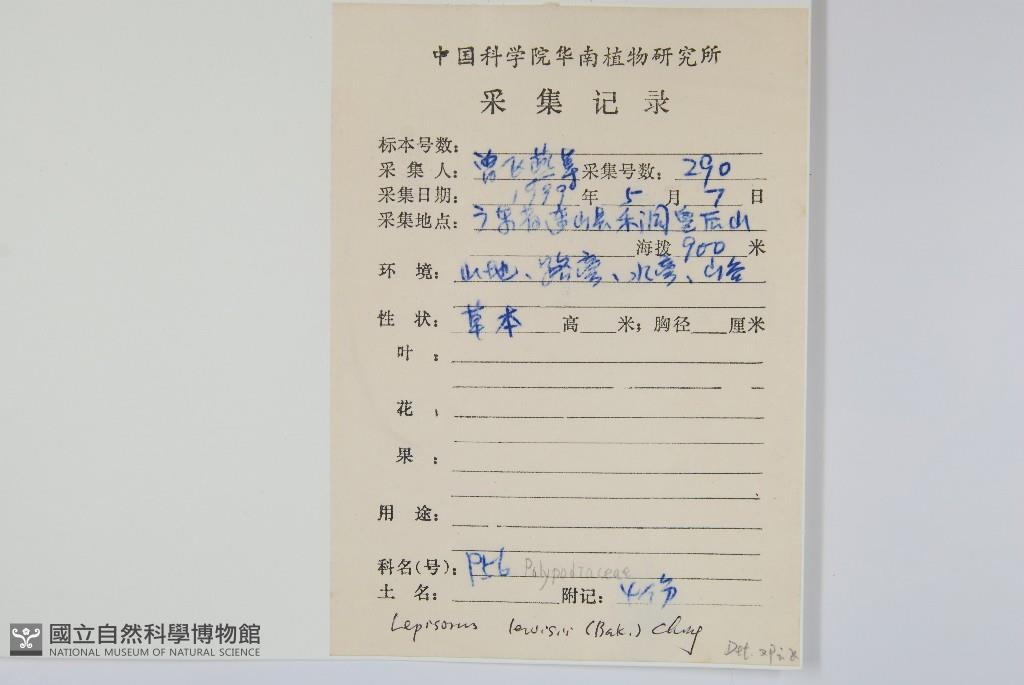 中国科学院华南植物研究所
采集记录
标本号数:
采集人: 曾飞燕等 采集号数: 290
采集日期: 1999年 5月 7日
采集地点: 广东省连山县禾洞 山
海拨 900 米
环境: 山地、路旁、水旁、山谷
性状: 草本 高 米; 胸径 厘米
叶:
花:
果:
用途:
科名(号): P56 Polypodiaceae
土名: 附记: 4份
Lepisorus lewisii (Bak.) Ching
Det.
國立自然科學博物館
NATIONAL MUSEUM OF NATURAL SCIENCE